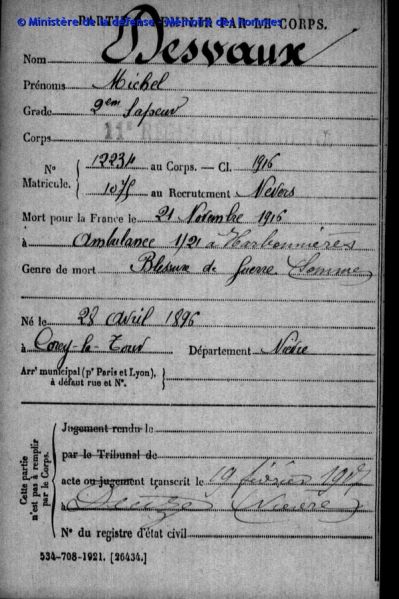 PARTIE À REMPLIR PAR LE CORPS.
© Ministère de la défense - Mémoire des hommes
Nom Desvaux
Prénoms Michel
Grade 2em Sapeur
Corps 11e RÉGIMENT
No Matricule. { 12234 au Corps. — Cl. 1916
1075 au Recrutement Nevers
Mort pour la France le 21 Novembre 1916
à Ambulance 1/21 à Harbonnières
Genre de mort Blessure de guerre Somme
Né le 28 Avril 1896
à Cercy-la-Tour Département Nièvre
Arrt municipal (pr Paris et Lyon), à défaut rue et No. }
Cette partie n'est pas à remplir par le Corps.
Jugement rendu le
par le Tribunal de
acte ou jugement transcrit le 19 février 1917
à Decize (Nièvre)
No du registre d'état civil
534-708-1921. [26434.]